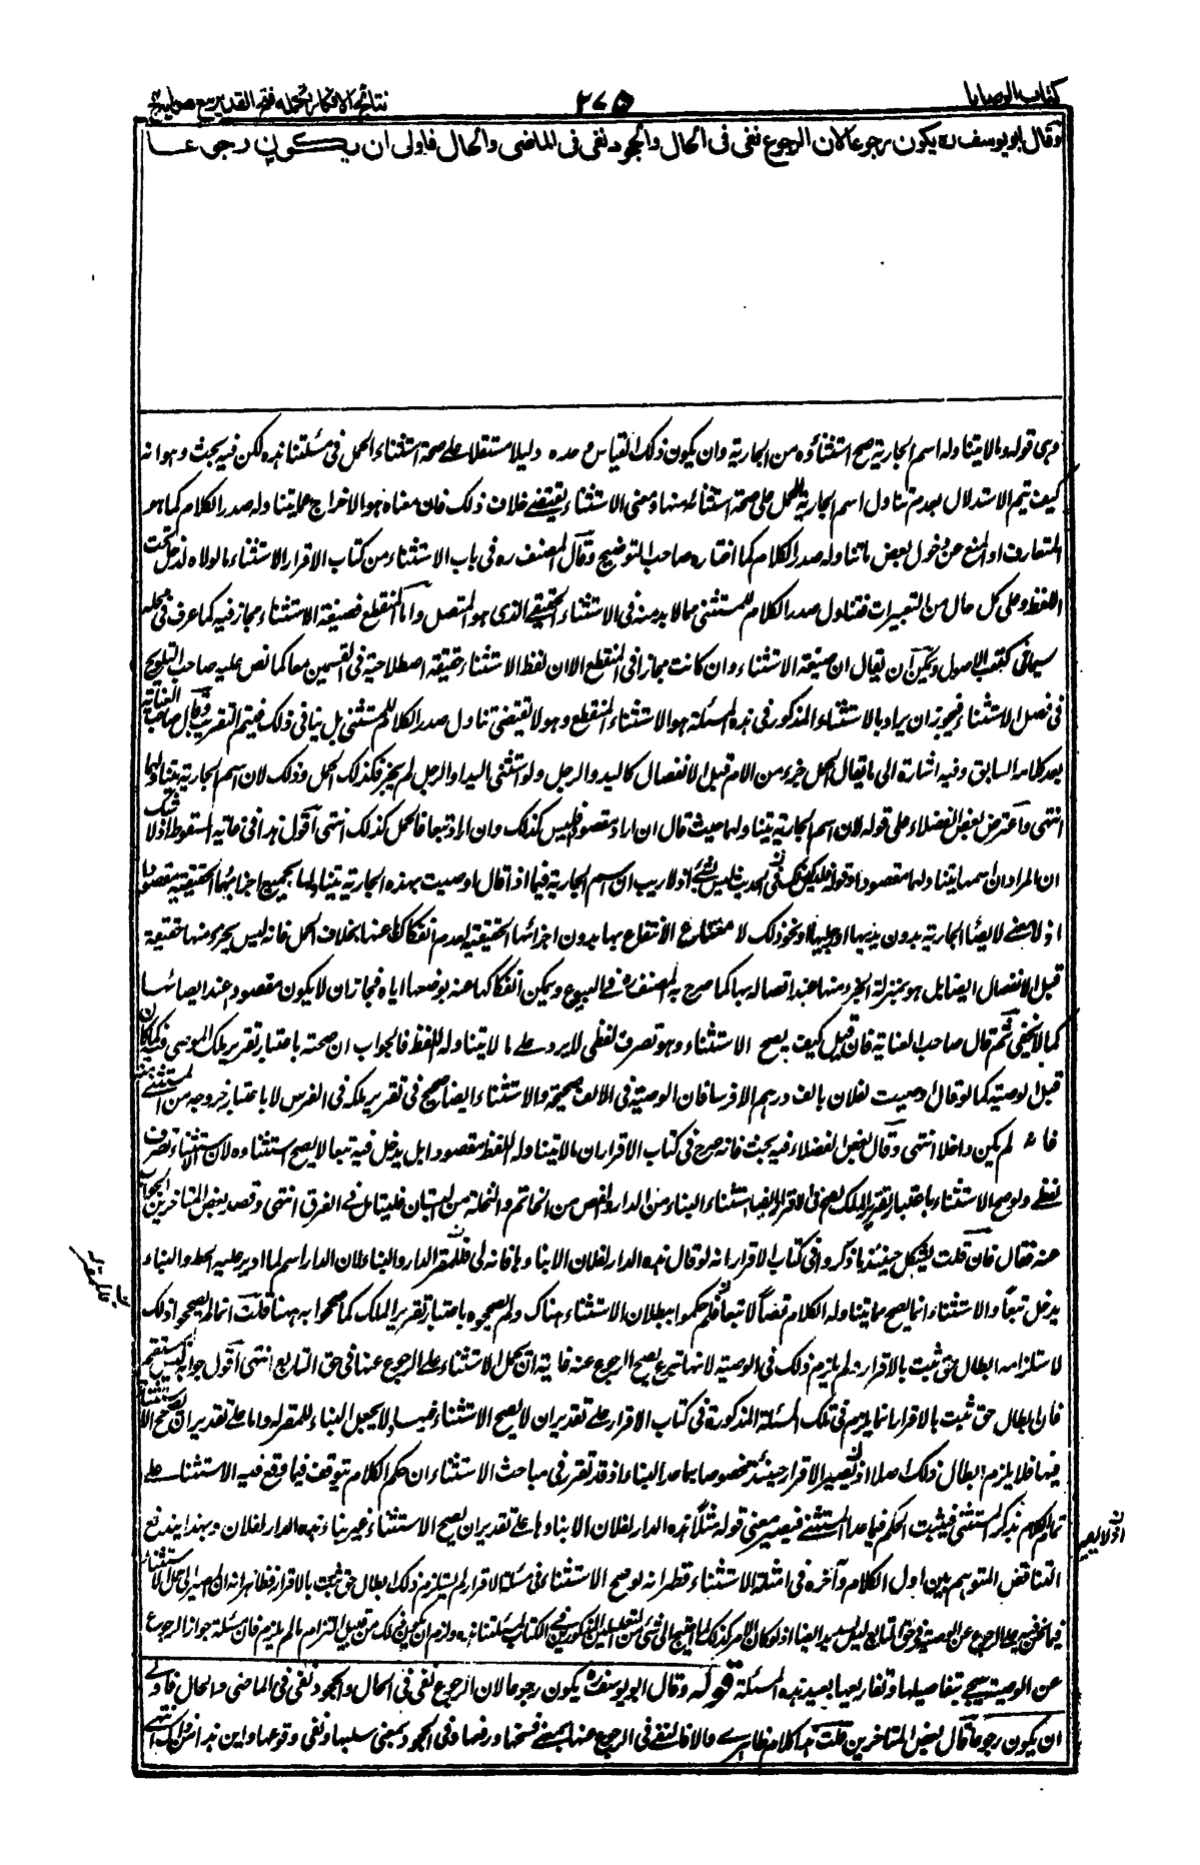 كتاب الوصايا
٢٧٥
نتائج الافكار تكملة فتح القدير مع هداية
وقال ابو يوسف رہ يكون رجوعا لان الرجوع نفى فى الحال والجحود نفى فى الماضى والحال فاولى ان يكون رجوعا
وهى قوله ومالا يتناوله اسم الجارية صح استثناؤه من الجارية وان يكون ذلك القياس وحده دليلا مستقلا على صحة استثناء الحمل فى مسئلتنا هذه لكن فيه بحث وهو انه
كيف يتم الاستدلال بعدم تناول اسم الجارية للحمل على صحة استثنائه منها ومعنى الاستثناء يقتضى خلاف ذلك فان معناه هو الاخراج عما يتناوله صدر الكلام كما هو
المتعارف او المنع عن دخول بعض ما تناوله صدر الكلام كما اختاره صاحب التوضيح وقال المصنف رہ فى باب الاستثناء من كتاب الاقرار الاستثناء مالولاه لدخل تحت
اللفظ وعلى كل حال من التعبيرات فتناول صدر الكلام للمستثنى مما لا بد منه فى الاستثناء الحقيقى الذى هو المتصل واما المنقطع فصيغة الاستثناء مجاز فيه كما عرف فى محله
سيما فى كتب الاصول ويمكن ان يقال ان صيغة الاستثناء وان كانت مجازا فى المنقطع الا ان لفظ الاستثناء حقيقة اصطلاحية فى القسمين معا كما نص عليه صاحب التلويح
فى فصل الاستثناء فيجوز ان يراد بالاستثناء المذكور فى هذه المسئلة هو الاستثناء المنقطع وهو لا يقتضى تناول صدر الكلام للمستثنى بل ينافى ذلك فيتم التقريب وقال صاحب العناية
بعد كلامه السابق وفيه اشارة الى ما يقال الحمل جزء من الام قبل الانفصال كاليد والرجل ولو استثنى اليد او الرجل لم يجز فكذلك الحمل وذلك لان اسم الجارية يتناولهما
انتهى واعترض بعض الفضلاء على قوله لان اسم الجارية يتناولهما حيث قال ان اراد مقصودا فليس كذلك وان اراد تبعا فالحمل كذلك انتهى اقول هذا فى غاية السقوط اذ لا شك
ان المراد ان اسمها يتناولهما مقصودا وقوله فليس كذلك فى اليد ليس بشئ اذ لا ريب ان اسم الجارية فيما اذا قال اوصيت بهذه الجارية يتناولها بجميع اجزائها الحقيقية مقصودا
اذ لا معنى لايصاء الجارية بدون يديها او رجليها ونحو ذلك لامتناع الانتفاع بها بدون اجزائها الحقيقية لعدم انفكاكها عنها بخلاف الحمل فانه ليس بجزء منها حقيقة
قبل الانفصال ايضا بل هو بمنزلة الجزء منها عند اتصاله بها كما صرح به المصنف رہ فى البيوع ويمكن انفكاكها عنه بوضعها اياه فجاز ان لا يكون مقصودا عند ايصائها
كما لا يخفى ثم قال صاحب العناية فان قيل كيف يصح الاستثناء وهو تصرف لفظى لا يرد على ما لا يتناوله اللفظ فالجواب ان صحته باعتبار تقرير ملك الموصى فيه كما كان
قبل الوصية كما لو قال اوصيت لفلان بالف درهم الا فرسا فان الوصية فى الالف صحيحة والاستثناء ايضا صحيح فى تقرير ملكه فى الفرس لا باعتبار خروجه من المستثنى منه
فانه لم يكن داخلا انتهى وقال بعض الفضلاء فيه بحث فانه صرح فى كتاب الاقرار ان ما لا يتناوله اللفظ مقصودا بل يدخل فيه تبعا لا يصح استثناؤه لان الاستثناء تصرف
لفظى ولو صح الاستثناء باعتبار تقرير الملك لصح فى الاقرار ايضا استثناء البناء من الدار والفص من الخاتم والنخلة من البستان فليتامل فى الفرق انتهى وقصد بعض المتاخرين الجواب
عنه فقال فان قلت يشكل حينئذ ما ذكروا فى كتاب الاقرار انه لو قال هذه الدار لفلان الا بناءها فانه لى فللمقر له الدار والبناء لان الدار اسم لما ادير عليه الحيط والبناء
يدخل تبعا والاستثناء انما يصح مما يتناوله الكلام نصا لا تبعا فلم حكموا ببطلان الاستثناء هناك ولم يصححوه باعتبار تقرير الملك كما صححوا به ههنا قلت انما لم يصححوا ذلك
لاستلزامه ابطال حق ثبت بالاقرار ولم يلزم ذلك فى الوصية لانها تبرع يصح الرجوع عنه غاية ان يحمل الاستثناء على الرجوع عنها فى حق التابع انتهى اقول جوابه ليس بمستقيم
فان ابطال حق ثبت بالاقرار انما يلزم فى تلك المسئلة المذكورة فى كتاب الاقرار على تقدير ان لا يصح الاستثناء فيها ولا يجعل البناء للمقر له واما على تقدير ان يصح الاستثناء
فيها فلا يلزم ابطال ذلك اصلا اذ يصير الاقرار حينئذ مخصوصا بما عدا البناء اذ قد تقرر فى مباحث الاستثناء ان حكم الكلام يتوقف فيما وقع فيه الاستثناء على
تمام الكلام بذكر المستثنى فيثبت الحكم فيما عدا المستثنى فيصير معنى قوله مثلا هذه الدار لفلان الا بناءها على تقدير ان يصح الاستثناء غير بناء هذه الدار لفلان وبهذا يندفع
التناقض المتوهم بين اول الكلام وآخره فى امثلة الاستثناء فظهر انه لو صح الاستثناء فى مسئلة الاقرار لم يستلزم ذلك ابطال حق ثبت بالاقرار فظاهر انه ان صير الى حمل الاستثناء
فيما نحن فيه على الرجوع عن الوصية فى حق التابع ليس بسديد ايضا اذ لو كان الامر كذلك لما احتيج الى شئ من التعليلين المذكورين فى الكتاب لمسئلتنا هذه ولزم ان يكون ذلك من قبيل التزام مالم يلزم فان مسئلة جواز الرجوع
عن الوصية سيجئ بتفاصيلها وتفاريعها بعيد هذه المسئلة قوله وقال ابو يوسف رہ يكون رجوعا لان الرجوع نفى فى الحال والجحود نفى فى الماضى والحال فاولى
ان يكون رجوعا قال بعض المتاخرين قلت هذا كلام ظاهرى والا فالنفى فى الرجوع عنها بمعنى فسخها ورفعها وفى الجحود بمعنى سلبها ونفى وقوعها واين هذا من ذلك انتهى